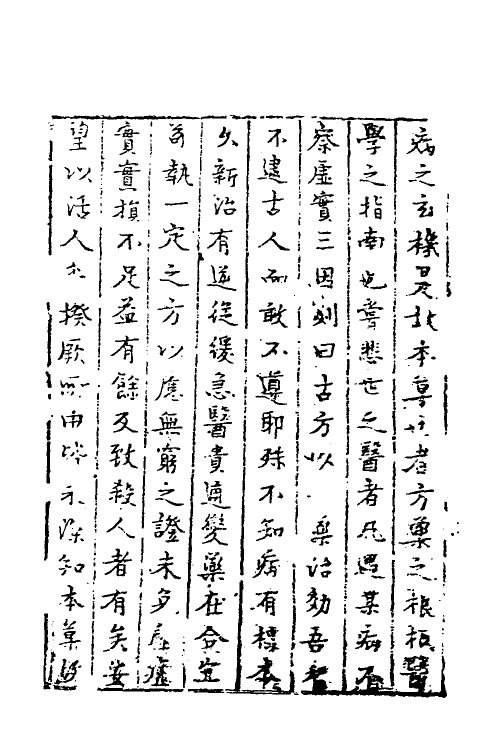 病之玄機是故本草者方藥之根柢醫
學之指南也嘗悲世之醫者凡遇某病不
察虛實三因則曰古方以 藥治効吾智
不逮古人而敢不遵耶殊不知病有標本
久新治有逆從緩急醫貴通變藥在合宜
苟執一定之方以應無窮之證未免虛虛
實實損不足益有餘反致殺人者有矣安
望以活人 揆厥所由皆 深知本草